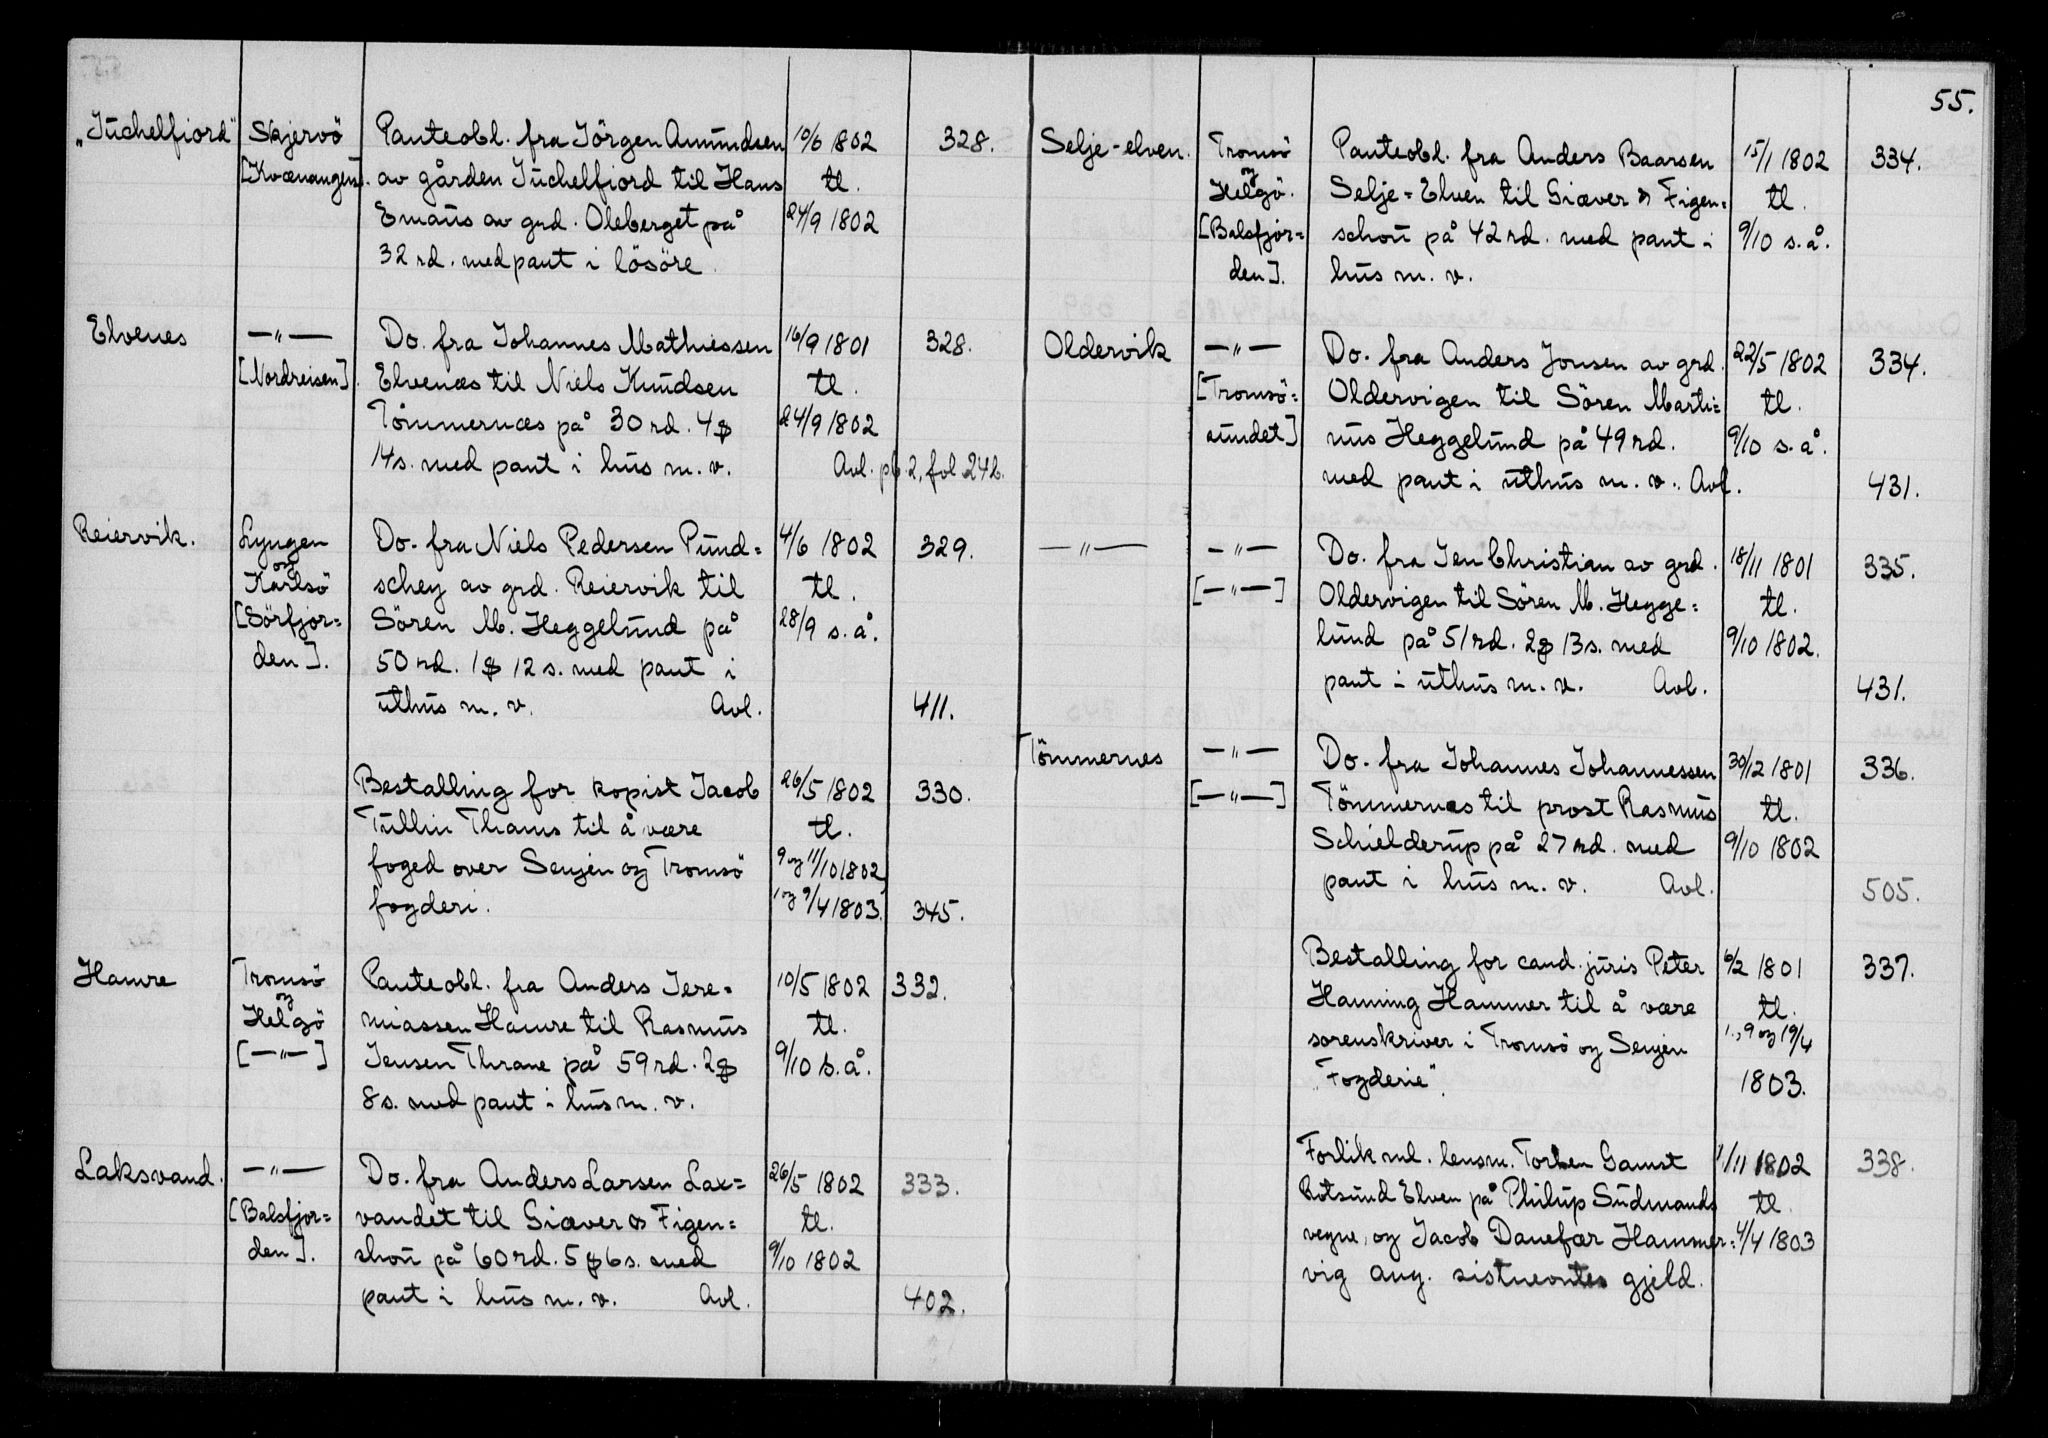 55.
„Juchelfiord" Skjervö Panteobl. fra Jörgen Amundsen 10/6 1802 328.
[Kvænangen]. av gården Juchelfiord til Hans tl.
Emaus av grd. Oleberget på 24/9 1802
32 rd. med pant i lösöre.
Elvenes —"— Do. fra Johannes Mathiessen 16/9 1801 328.
[Nordreisen]. Elvenæs til Niels Knudsen tl.
Tömmernæs på 30 rd. 4 $ 24/9 1802
14 s. med pant i hus m. v. Avl. pb. 2, fol 24b.
Reiervik. Lyngen Do. fra Niels Pedersen Pund= 4/6 1802 329.
og
Karlsö schey av grd. Reiervik til tl.
[Sörfjor= Sören M. Heggelund på 28/9 s. å.
den]. 50 rd. 1 $ 12 s. med pant i
uthus m. v. Avl. 411.
Bestalling for kopist Jacob 26/5 1802 330.
Tullin Thams til å være tl.
foged over Senjen og Tromsö 9 og 11/10 1802
fogderi. 1 og 9/4 1803. 345.
Hamre Tromsö Panteobl. fra Anders Jere= 10/5 1802 332.
og
Helgö miassen Hamre til Rasmus tl.
[—"—] Jensen Thrane på 59 rd. 2 $ 9/10 s. å.
8 s. med pant i hus m. v.
Laksvand. —"— Do. fra Anders Larsen Lax= 26/5 1802 333.
[Balsfjor= vandet til Giæver & Figen= tl.
den]. shou på 60 rd. 5 $ 6 s. med 9/10 1802
pant i hus m. v. Avl. 402.
Selje-elven. Tromsö Panteobl. fra Anders Baarsen 15/1 1802 334.
og
Helgö. Selje=Elven til Giæver & Figen= tl.
[Balsfjor= schou på 42 rd. med pant i 9/10 s. å.
den]. hus m. v.
Oldervik —"— Do. fra Anders Jonsen av grd. 22/5 1802 334.
[Tromsö= Oldervigen til Sören Marti= tl.
sundet] nus Heggelund på 49 rd. 9/10 s. å.
med pant i uthus m. v. Avl. 431.
—"— —"— Do. fra Jen Christian av grd. 18/11 1801 335.
[—"—] Oldervigen til Sören M. Hegge= tl.
lund på 51 rd. 2 $ 13 s. med 9/10 1802.
pant i uthus m. v. Avl. 431.
Tömmernes —"— Do. fra Johannes Johannessen 30/12 1801 336.
[—"—] Tömmernæs til prost Rasmus tl.
Schielderup på 27 rd. med 9/10 1802
pant i hus m. v. Avl. 505.
Bestalling for cand. juris Peter 6/2 1801 337.
Hanning Hammer til å være tl.
sorenskriver i Tromsö og Senjen 1., 9 og 19/4
„Fogderie". 1803.
Forlik ml. lensm. Torben Gamst 1/11 1802 338.
Rotsund Elven på Philup Sudmands tl.
vegne, og Jacob Danefær Hammer= 4/4 1803
vig ang. sistnevntes gjeld.